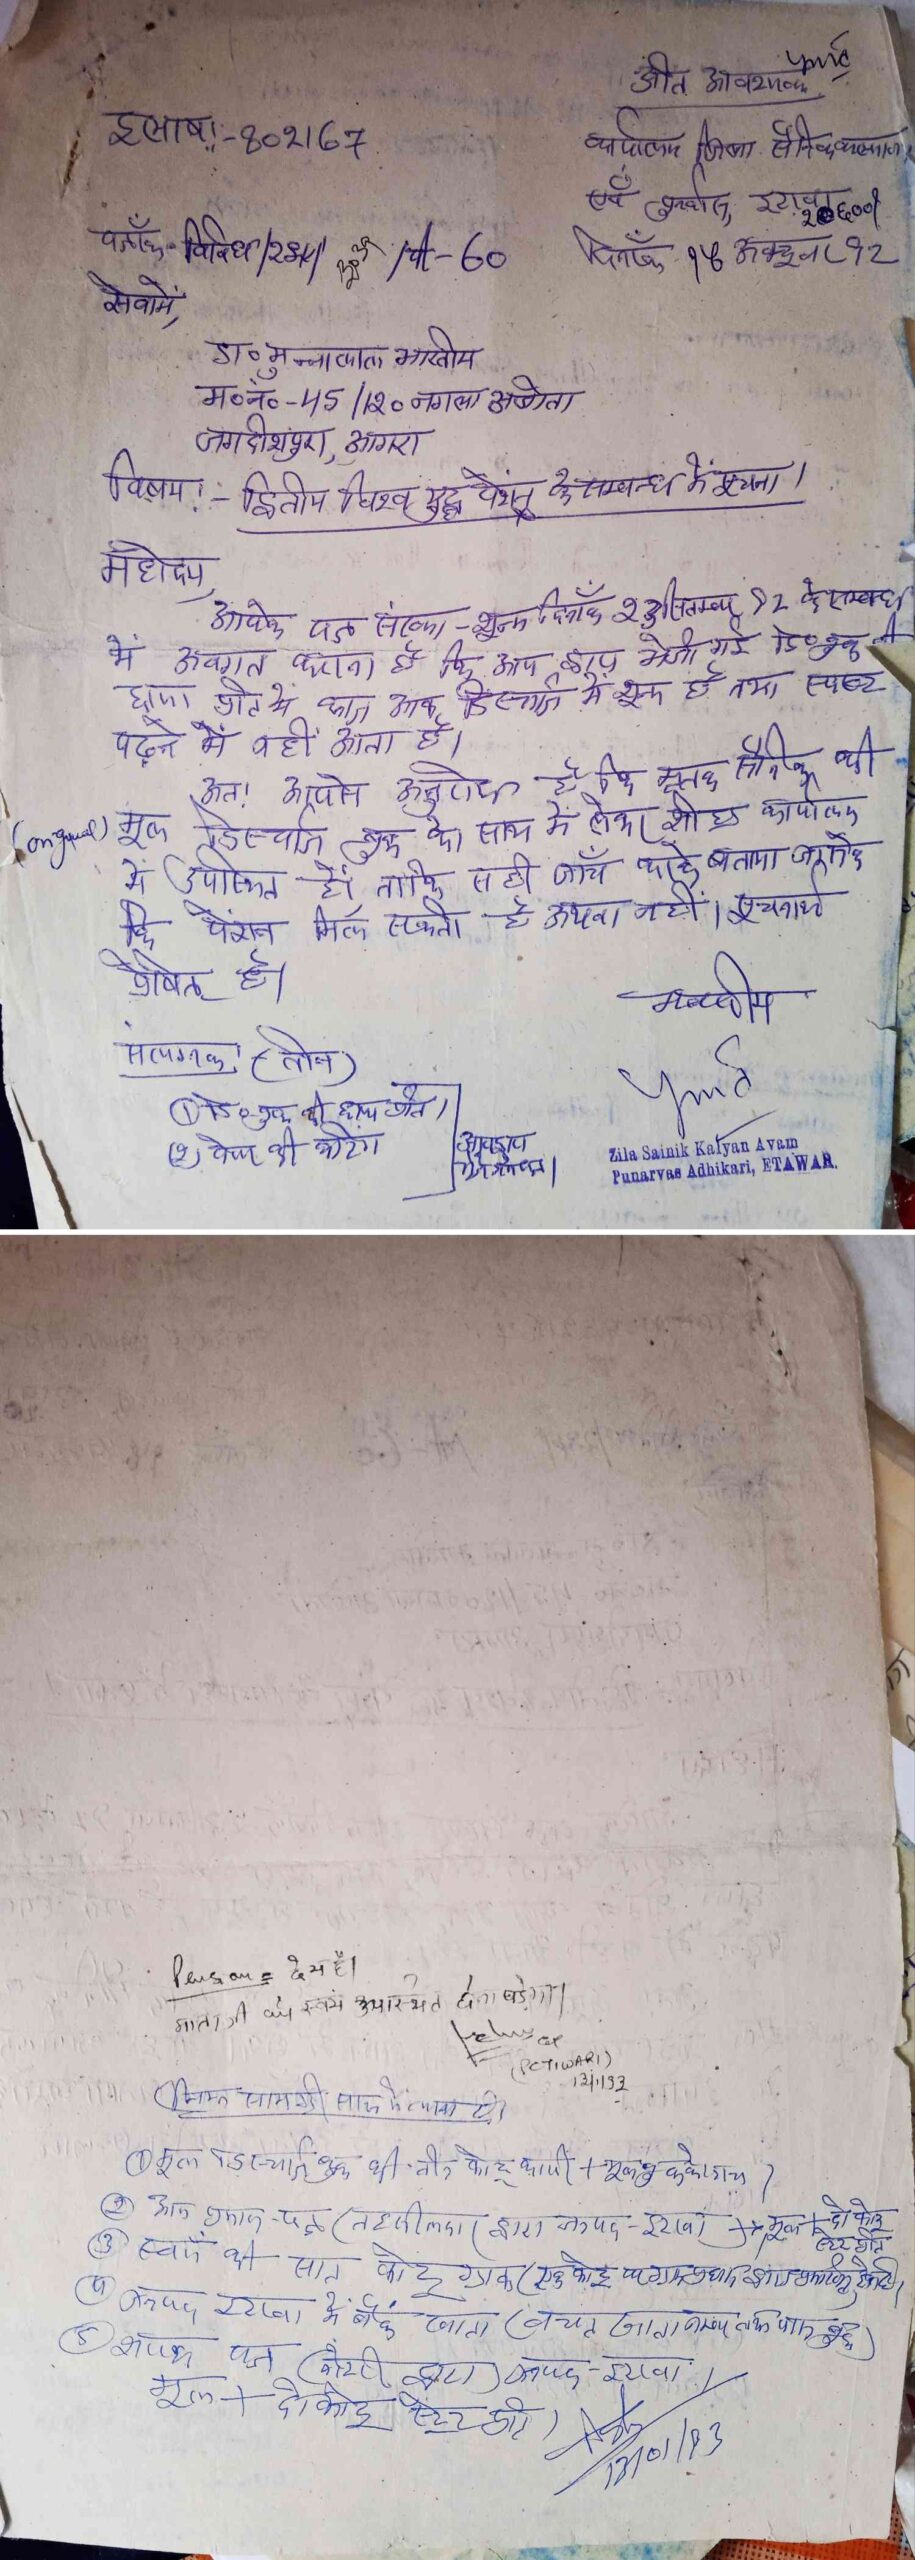 अति आवश्यक
इलाषा:-802167
कार्यालय जिला सैनिक कल्याण
एवं पुनर्वास, इटावा 206001
पत्रांक-विविध/ /पी-60
दिनाँक 15 अक्टूबर 92
सेवामें,
डा० मुन्नालाल भारतीय
म०नं०-45/120 नगला अजीता
जगदीशपुरा, आगरा
विषय:- द्वितीय विश्व युद्ध पेंशन के सम्बन्ध में सूचना।
महोदय,
आपके पत्र संख्या-शून्य दिनाँक 23 सितम्बर 92 के सम्बन्ध
में अवगत कराना है कि आप द्वारा भेजी गई डि० बुक की
छाया प्रति में डिस्चार्ज में है तथा स्पष्ट
पढ़ने में नहीं आता है।
अतः आपसे अनुरोध है कि मृतक सैनिक की
(original) मूल डिस्चार्ज बुक को साथ में लेकर शीघ्र कार्यालय
में उपस्थित हों ताकि सही जाँच करके बताया जा सके
कि पेंशन मिल सकती है अथवा नहीं। सूचनार्थ
प्रेषित है।
भवदीय
संलग्नक: (तीन)
① डि० बुक की छाया प्रति।
(2) की
Zila Sainik Kalyan Avam
Punarvas Adhikari, ETAWAH.
Pension = देय है।
माताजी को स्वयं उपस्थित होना पड़ेगा।
(P C TIWARI)
13/1/93
निम्न सामग्री साथ में लावें
① मूल डिस्चार्ज बुक की तीन फोटो कापी + मूल बुक के साथ
② आय प्रमाण-पत्र (तहसीलदार द्वारा जनपद-इटावा) + मूल + दो फोटो
स्टेट प्रति
③ स्वयं की सात फोटो ग्राफ
④ जनपद इटावा में बैंक खाता (बचत खाता
⑤ शपथ पत्र (नोटरी द्वारा) जनपद-इटावा।
मूल + दो फोटो स्टेट प्रति।
13/01/93